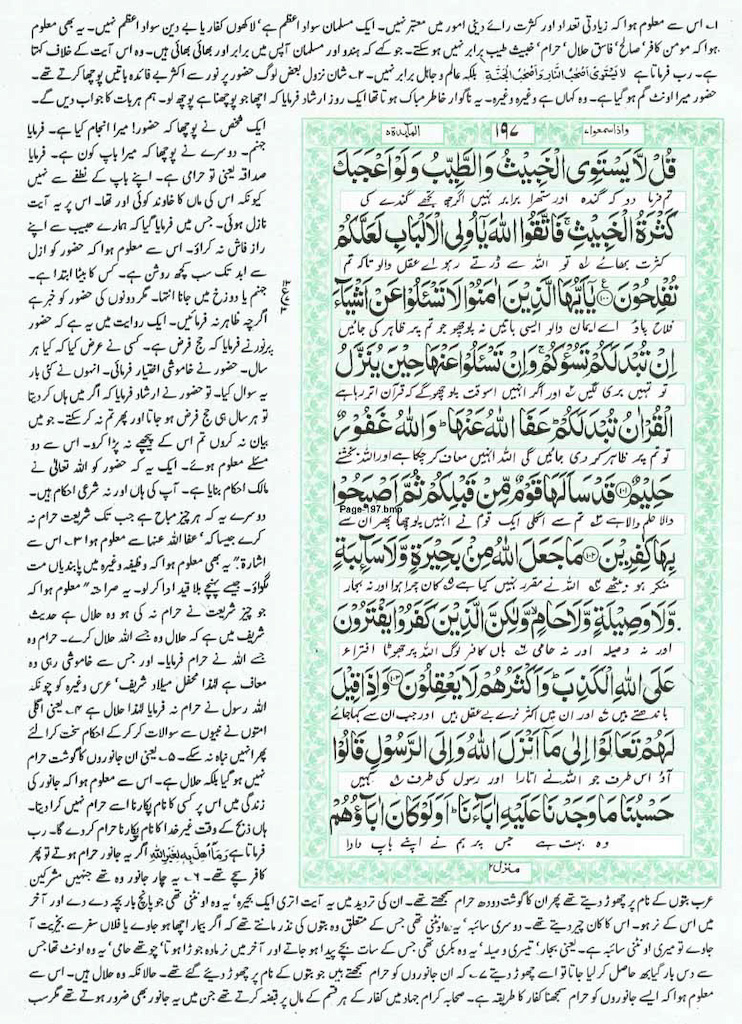 ۱۔ اس سے معلوم ہوا کہ زیادتی تعداد اور کثرت رائے دینی امور میں معتبر نہیں۔ ایک مسلمان سواد اعظم ہے' لاکھوں کفار یا بے دین سواد اعظم نہیں۔ یہ بھی معلوم
ہوا کہ مومن کافر' صالح' فاسق حلال' حرام' خبیث طیب برابر نہیں ہو سکتے۔ جو کہے کہ ہندو اور مسلمان آپس میں برابر اور بھائی بھائی ہیں۔ وہ اس آیت کے خلاف کہتا
ہے۔ رب فرماتا ہے لَا يَسْتَوِىْ اَصْحٰبُ النَّارِ وَاَصْحٰبُ الْجَنَّةِ بلکہ عالم و جاہل برابر نہیں۔ ۲۔ شان نزول بعض لوگ حضور پر نور سے اکثر بے فائدہ باتیں پوچھا کرتے تھے۔
حضور میرا اونٹ گم ہو گیا ہے۔ وہ کہاں ہے وغیرہ وغیرہ۔ یہ ناگوار خاطر مبارک ہوتا تھا ایک روز ارشاد فرمایا کہ اچھا جو پوچھنا ہے پوچھ لو۔ ہم ہر بات کا جواب دیں گے۔
واذا سمعوا ۷ ۱۹۷ المآىدة ۵
قُلْ لَّا يَسْتَوِى الْخَبِيْثُ وَالطَّيِّبُ وَلَوْ اَعْجَبَكَ
تم فرما دو کہ گندہ اور ستھرا برابر نہیں اگرچہ تجھے گندے کی
كَثْرَةُ الْخَبِيْثِ ۚ فَاتَّقُوا اللّٰهَ يٰۤاُولِى الْاَلْبَابِ لَعَلَّكُمْ
کثرت بھائے تو اللہ سے ڈرتے رہو اے عقل والو تاکہ تم
تُفْلِحُوْنَ ۱۰۰ يٰۤاَيُّهَا الَّذِيْنَ اٰمَنُوْا لَا تَسْـَٔلُوْا عَنْ اَشْيَآءَ
فلاح پاؤ اے ایمان والو ایسی باتیں نہ پوچھو جو تم پر ظاہر کی جائیں
اِنْ تُبْدَ لَكُمْ تَسُؤْكُمْ ۚ وَاِنْ تَسْـَٔلُوْا عَنْهَا حِيْنَ يُنَزَّلُ
تو تمہیں بری لگیں اور اگر انہیں اسوقت پوچھو گے کہ قرآن اتر رہا ہے
الْقُرْاٰنُ تُبْدَ لَكُمْ ؕ عَفَا اللّٰهُ عَنْهَا ؕ وَاللّٰهُ غَفُوْرٌ
تو تم پر ظاہر کر دی جائیں گی اللہ انہیں معاف کر چکا ہے اور اللہ بخشنے
حَلِيْمٌ ۱۰۱ قَدْ سَاَلَهَا قَوْمٌ مِّنْ قَبْلِكُمْ ثُمَّ اَصْبَحُوْا
Page-197.bmp
والا حلم والا ہے تم سے اگلی ایک قوم نے انہیں پوچھا پھر ان سے
بِهَا كٰفِرِيْنَ ۱۰۲ مَا جَعَلَ اللّٰهُ مِنْۢ بَحِيْرَةٍ وَّلَا سَآئِبَةٍ
منکر ہو بیٹھے اللہ نے مقرر نہیں کیا ہے کان چرا ہوا اور نہ بجار
وَّلَا وَصِيْلَةٍ وَّلَا حَامٍ ۙ وَّلٰكِنَّ الَّذِيْنَ كَفَرُوْا يَفْتَرُوْنَ
اور نہ وصیلہ اور نہ حامی ہاں کافر لوگ اللہ پر جھوٹا افتراء
عَلَى اللّٰهِ الْكَذِبَ ؕ وَاَكْثَرُهُمْ لَا يَعْقِلُوْنَ ۱۰۳ وَاِذَا قِيْلَ
باندھتے ہیں اور ان میں اکثر نرے بے عقل ہیں اور جب ان سے کہا جائے
لَهُمْ تَعَالَوْا اِلٰى مَاۤ اَنْزَلَ اللّٰهُ وَاِلَى الرَّسُوْلِ قَالُوْا
آؤ اس طرف جو اللہ نے اتارا اور رسول کی طرف کہیں
حَسْبُنَا مَا وَجَدْنَا عَلَيْهِ اٰبَآءَنَا ؕ اَوَلَوْ كَانَ اٰبَآؤُهُمْ
وہ بہت ہے جس پر ہم نے اپنے باپ دادا
منزل ۲
ایک شخص نے پوچھا کہ حضور! میرا انجام کیا ہے۔ فرمایا
جہنم۔ دوسرے نے پوچھا کہ میرا باپ کون ہے۔ فرمایا
صداقہ یعنی تو حرامی ہے۔ اپنے باپ کے نطفے سے نہیں
کیونکہ اس کی ماں کا خاوند کوئی اور تھا۔ اس پر یہ آیت
نازل ہوئی۔ جس میں فرمایا گیا کہ ہمارے حبیب سے اپنے
راز فاش نہ کراؤ۔ اس سے معلوم ہوا کہ حضور کو ازل
سے ابد تک سب کچھ روشن ہے۔ کس کا بیٹا ابتدا ہے۔
جہنم یا دوزخ میں جانا انتہا۔ مگر دونوں کی حضور کو خبر ہے
اگرچہ ظاہر نہ فرمائیں۔ ایک روایت میں یہ ہے کہ حضور
پرنور نے فرمایا کہ حج فرض ہے۔ کسی نے عرض کیا کہ کیا ہر
سال۔ حضور نے خاموشی اختیار فرمائی۔ انہوں نے کئی بار
یہ سوال کیا۔ تو حضور نے ارشاد فرمایا کہ اگر میں ہاں کہہ دیتا
تو ہر سال ہی حج فرض ہو جاتا اور پھر تم نہ کر سکتے۔ جو میں
بیان نہ کروں تم اس کے پیچھے نہ پڑا کرو۔ اس سے دو
مسئلے معلوم ہوئے۔ ایک یہ کہ حضور کو اللہ تعالیٰ نے
مالک احکام بنایا ہے۔ آپ کی ہاں اور نہ شرعی احکام ہیں۔
دوسرے یہ کہ ہر چیز مباح ہے جب تک شریعت حرام نہ
کرے جیسا کہ' عفا اللہ عنہا سے معلوم ہوا ۳۔ اس سے
اشارۃ" یہ بھی معلوم ہوا کہ وظیفہ وغیرہ میں پابندیاں مت
لگواؤ۔ جیسے پہنچے بلا قید ادا کر لو۔ یہ صراحتہ" معلوم ہوا کہ
جو چیز شریعت نے حرام نہ کی ہو وہ حلال ہے حدیث
شریف میں ہے کہ حلال وہ جسے اللہ حلال کرے۔ حرام وہ
جسے اللہ نے حرام فرمایا۔ اور جس سے خاموشی رہی وہ
معاف ہے لہذا محفل میلاد شریف' عرس وغیرہ کو چونکہ
اللہ رسول نے حرام نہ فرمایا لہذا حلال ہے ۴۔ یعنی اگلی
امتوں نے نبیوں سے سوالات کر کر کے احکام سخت کرا لئے
پھر انہیں نباہ نہ سکے۔ ۵۔ یعنی ان جانوروں کا گوشت حرام
نہیں ہو گیا بلکہ حلال ہے۔ اس سے معلوم ہوا کہ جانور کی
زندگی میں اس پر کسی کا نام پکارنا اسے حرام نہیں کر دیتا۔
ہاں ذبح کے وقت غیر خدا کا نام پکارنا حرام کر دے گا۔ رب
فرماتا ہے وَمَا اُهِلَّ بِهٖ لِغَيْرِ اللّٰهِ اگر یہ جانور حرام ہوتے تو پھر
کافر سچے تھے۔ ۶۔ یہ چار جانور وہ تھے جنہیں مشرکین
عرب بتوں کے نام پر چھوڑ دیتے تھے پھر ان کا گوشت و دودھ حرام سمجھتے تھے۔ ان کی تردید میں یہ آیت اتری ایک بحیرہ' یہ وہ اونٹنی تھی جو پانچ بار بچہ دے دے اور آخر
میں اس کے نر ہو۔ اس کا کان چیر دیتے تھے۔ دوسری سائبہ' یہ اونٹنی تھی جس کے متعلق وہ بتوں کی نذر مانتے تھے کہ اگر بیمار اچھا ہو جاوے یا فلاں سفر سے بخیریت آ
جاوے تو میری اونٹنی سائبہ ہے۔ یعنی بجار' تیسری وصیلہ' یہ وہ بکری تھی جس کے سات بچے پیدا ہو جاتے اور آخر میں نر مادہ جوڑا ہوتا' چوتھے حامی' یہ وہ اونٹ تھا جس
سے دس بار گیابھ حاصل کر لیا جاتا تو اسے چھوڑ دیتے ۷۔ کہ ان جانوروں کو حرام سمجھتے ہیں جو بتوں کے نام پر چھوڑ دیئے گئے تھے۔ حالانکہ وہ حلال ہیں۔ اس سے
معلوم ہوا کہ ایسے جانوروں کو حرام سمجھنا کفار کا طریقہ ہے۔ صحابہ کرام جہاد میں کفار کے ہر قسم کے مال پر قبضہ کرتے تھے جن میں یہ جانور بھی ضرور ہوتے تھے مگر سب